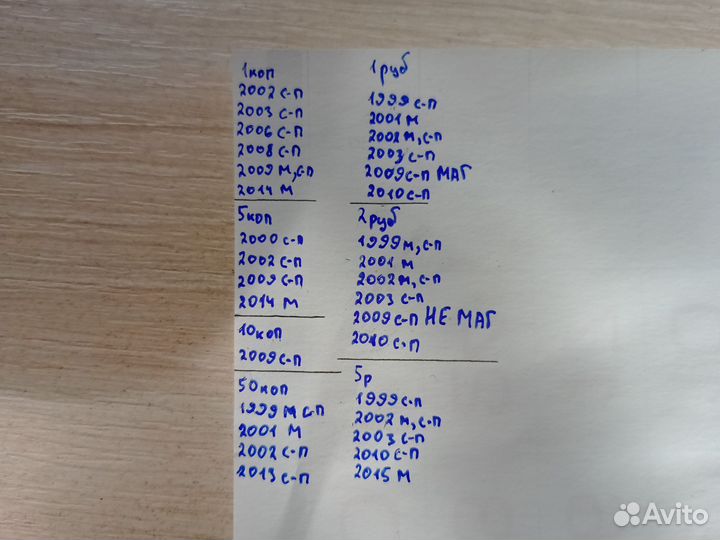 1коп
2002 с-п
2003 с-п
2006 с-п
2008 с-п
2009 м, с-п
2014 м
5коп
2000 с-п
2002 с-п
2009 с-п
2014 м
10коп
2009 с-п
50коп
1999 м с-п
2001 м
2002 с-п
2013 с-п
1руб
1999 с-п
2001 м
2002 м, с-п
2003 с-п
2009 с-п МАГ
2010 с-п
2руб
1999 м, с-п
2001 м
2002 м, с-п
2003 с-п
2009 с-п НЕ МАГ
2010 с-п
5р
1999 с-п
2002 м, с-п
2003 с-п
2010 с-п
2015 м
Avito